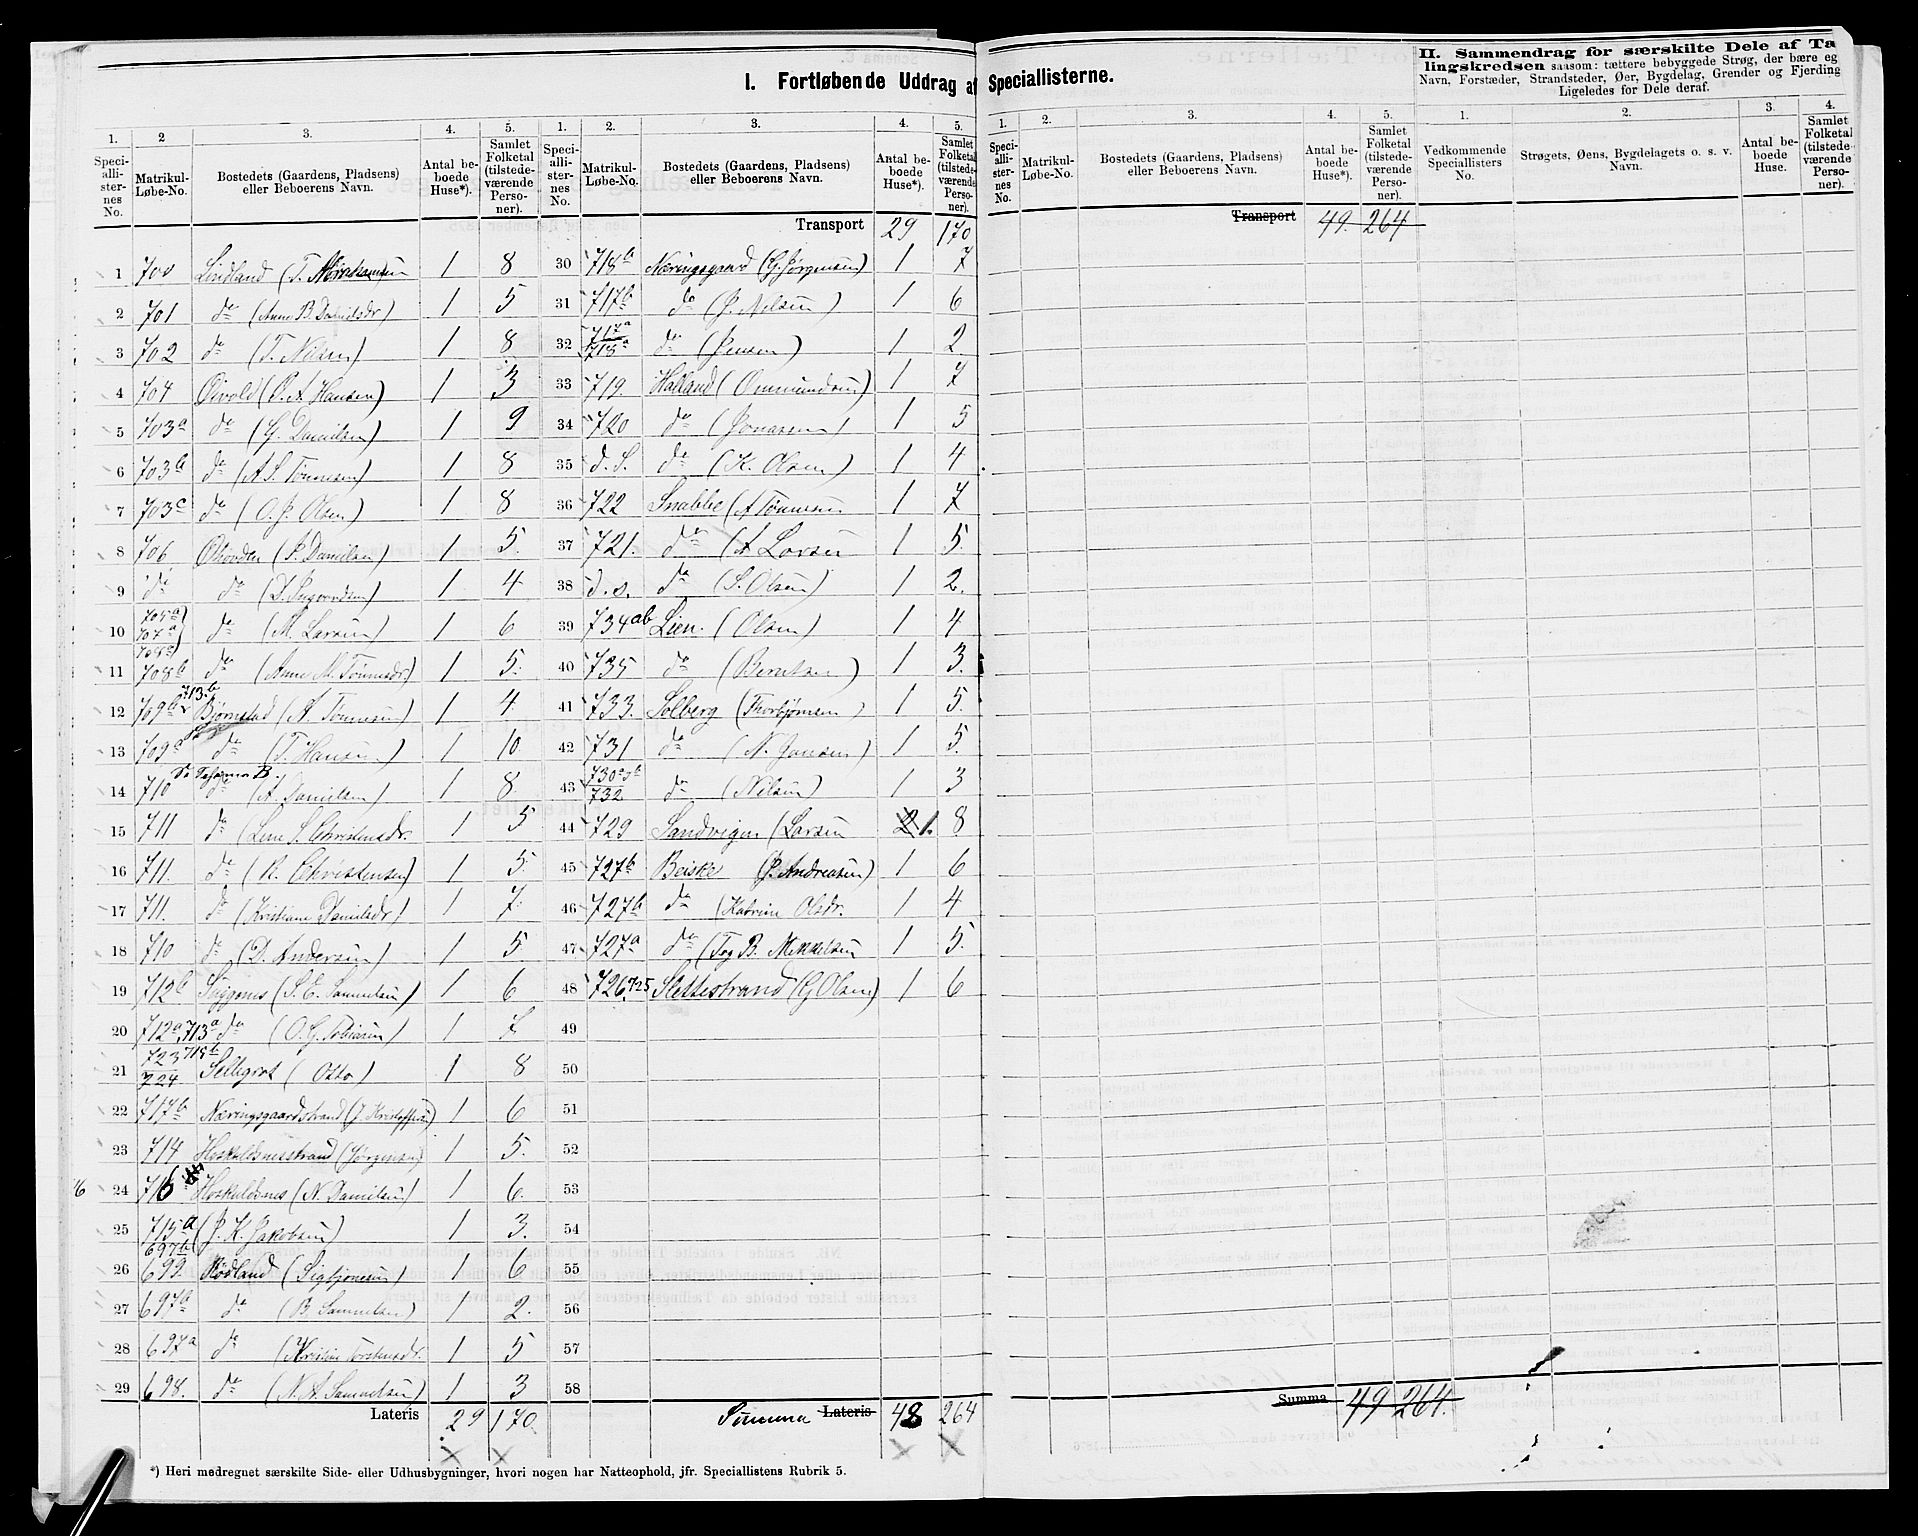 I. Fortløbende Uddrag af Speciallisterne.
II. Sammendrag for særskilte Dele af Ta
lingskredsen saasom: tættere bebyggede Strøg, der bære eg
Navn, Forstæder, Strandsteder, Øer, Bygdelag, Grender og Fjerding
Ligeledes for Dele deraf.
1. 2 3. 4. 5. 1. 2. 3. 4. 5.
Speciallisternes No. Matrikul-Løbe-No. Bostedets (Gaardens, Pladsens) eller Beboerens Navn. Antal beboede Huse*). Samlet Folketal (tilstedeværende Personer).
Speciallisternes No. Matrikul-Løbe-No. Bostedets (Gaardens, Pladsens) eller Beboerens Navn. Antal beboede Huse*). Samlet Folketal (tilstedeværende Personer).
1 700 Lindland (T. Abrahamsen 1 8
2 701 do (Anne B. Danielsdr) 1 5
3 702 do (T. Nilsen) 1 8
4 704 Øivold (P. A. Hansen) 1 3
5 703a do (G. Danielsen) 1 9
6 703b do (A. S. Tønnesen) 1 8
7 703c do (O. J. Olsen) 1 8
8 706 (P. Danielsen) 1 5.
9 do do (D. Ingvordsen) 1 4
10 705a 707a 708a do (M. Larsen) 1 6
11 708b do (Anne M. Tønnesdr.) 1 5.
12 709b 713.b Bjørnstad (A. Tønnesen) 1 4.
13 709a do (T. Hansen) 1 10.
14 710 do (A. Danielsen) 1 8.
15 711 do (Lene S. Christensdr. 1 5
16 711. do (R. Christensen) 1 5.
17 711. do (Kristiane Danielsdr) 1 7.
18 710 do (D. Andersen) 1 5.
19 712b (S. E. Samuelsen) 1 6
20 712a, 713a do (O. G. Tobiasen) 1 7
21 723 715b 724 Sellegrot (Otto) 1 8
22 717b Næringsgaardstrand (J. Kristoffersen) 1 6
23 714 Hoskuldsnesstrand (Jørgensen) 1 5.
16 24 716 Hoskuldsnes (N. Danielsen) 1 6.
25 715a (J. K. Jakobsen) 1 3.
26 697b 699. Rødland (Sigbjønsen) 1 6
27 697b do (B. Samuelsen) 1 2.
28 697a do (Kristine Torstensdr. 1 5
29 698. do (N. A. Samuelsen) 1 3
Lateris 29 170.
Transport 29 170
30 718a Næringsgaard (G. Jørgensen) 1 7
31 717b do (J. Nilsen) 1 6
32 717a 718a do (Jensen) 1 2.
33 719. Halland (Ommundsen) 1 7
34 720 do (Jonassen) 1 5
35 d. S. do (K. Olsen) 1 4
36 722 Snabbe (A Tønnesen 1 7
37 721. do (A Larsen 1 5.
38 d. s. do (S. Olsen) 1 2.
39 734ab Lien. (Olsen) 1 4
40 735 do (Berntsen) 1 3.
41 733. Solberg (Thorbjørnsen) 1 5.
42 731 do (N. Jonsen) 1 5.
43 730ab 732 do (Nilsen) 1 3
44 729 Sandvigen (Larsen 2 1. 8
45 727b Beiske (J. Andreasen) 1 6
46 727b do (Katrine Olsdr. 1 4
47 727a do (Tog B. Mikkelsen 1 5.
48 726. 725 Slettestrand (G Olsen) 1 6
49
50
51
52
53
54
55
56
57
58
Summa Lateris 48 264
*) Heri medregnet særskilte Side- eller Udhusbygninger, hvori nogen har Natteophold, jfr. Speciallistens Rubrik 5.
1. 2. 3. 4. 5. 1. 2. 3. 4.
Speciallisternes No. Matrikul-Løbe-No. Bostedets (Gaardens, Pladsens) eller Beboerens Navn. Antal beboede Huse*). Samlet Folketal (tilstedeværende Personer).
Vedkommende Speciallisters No. Strøgets, Øens, Bygdelagets o. s. v. Navn. Antal beboede Huse. Samlet Folketal (tilstedeværende Personer).
Transport 49. 264
Summa 49 264.